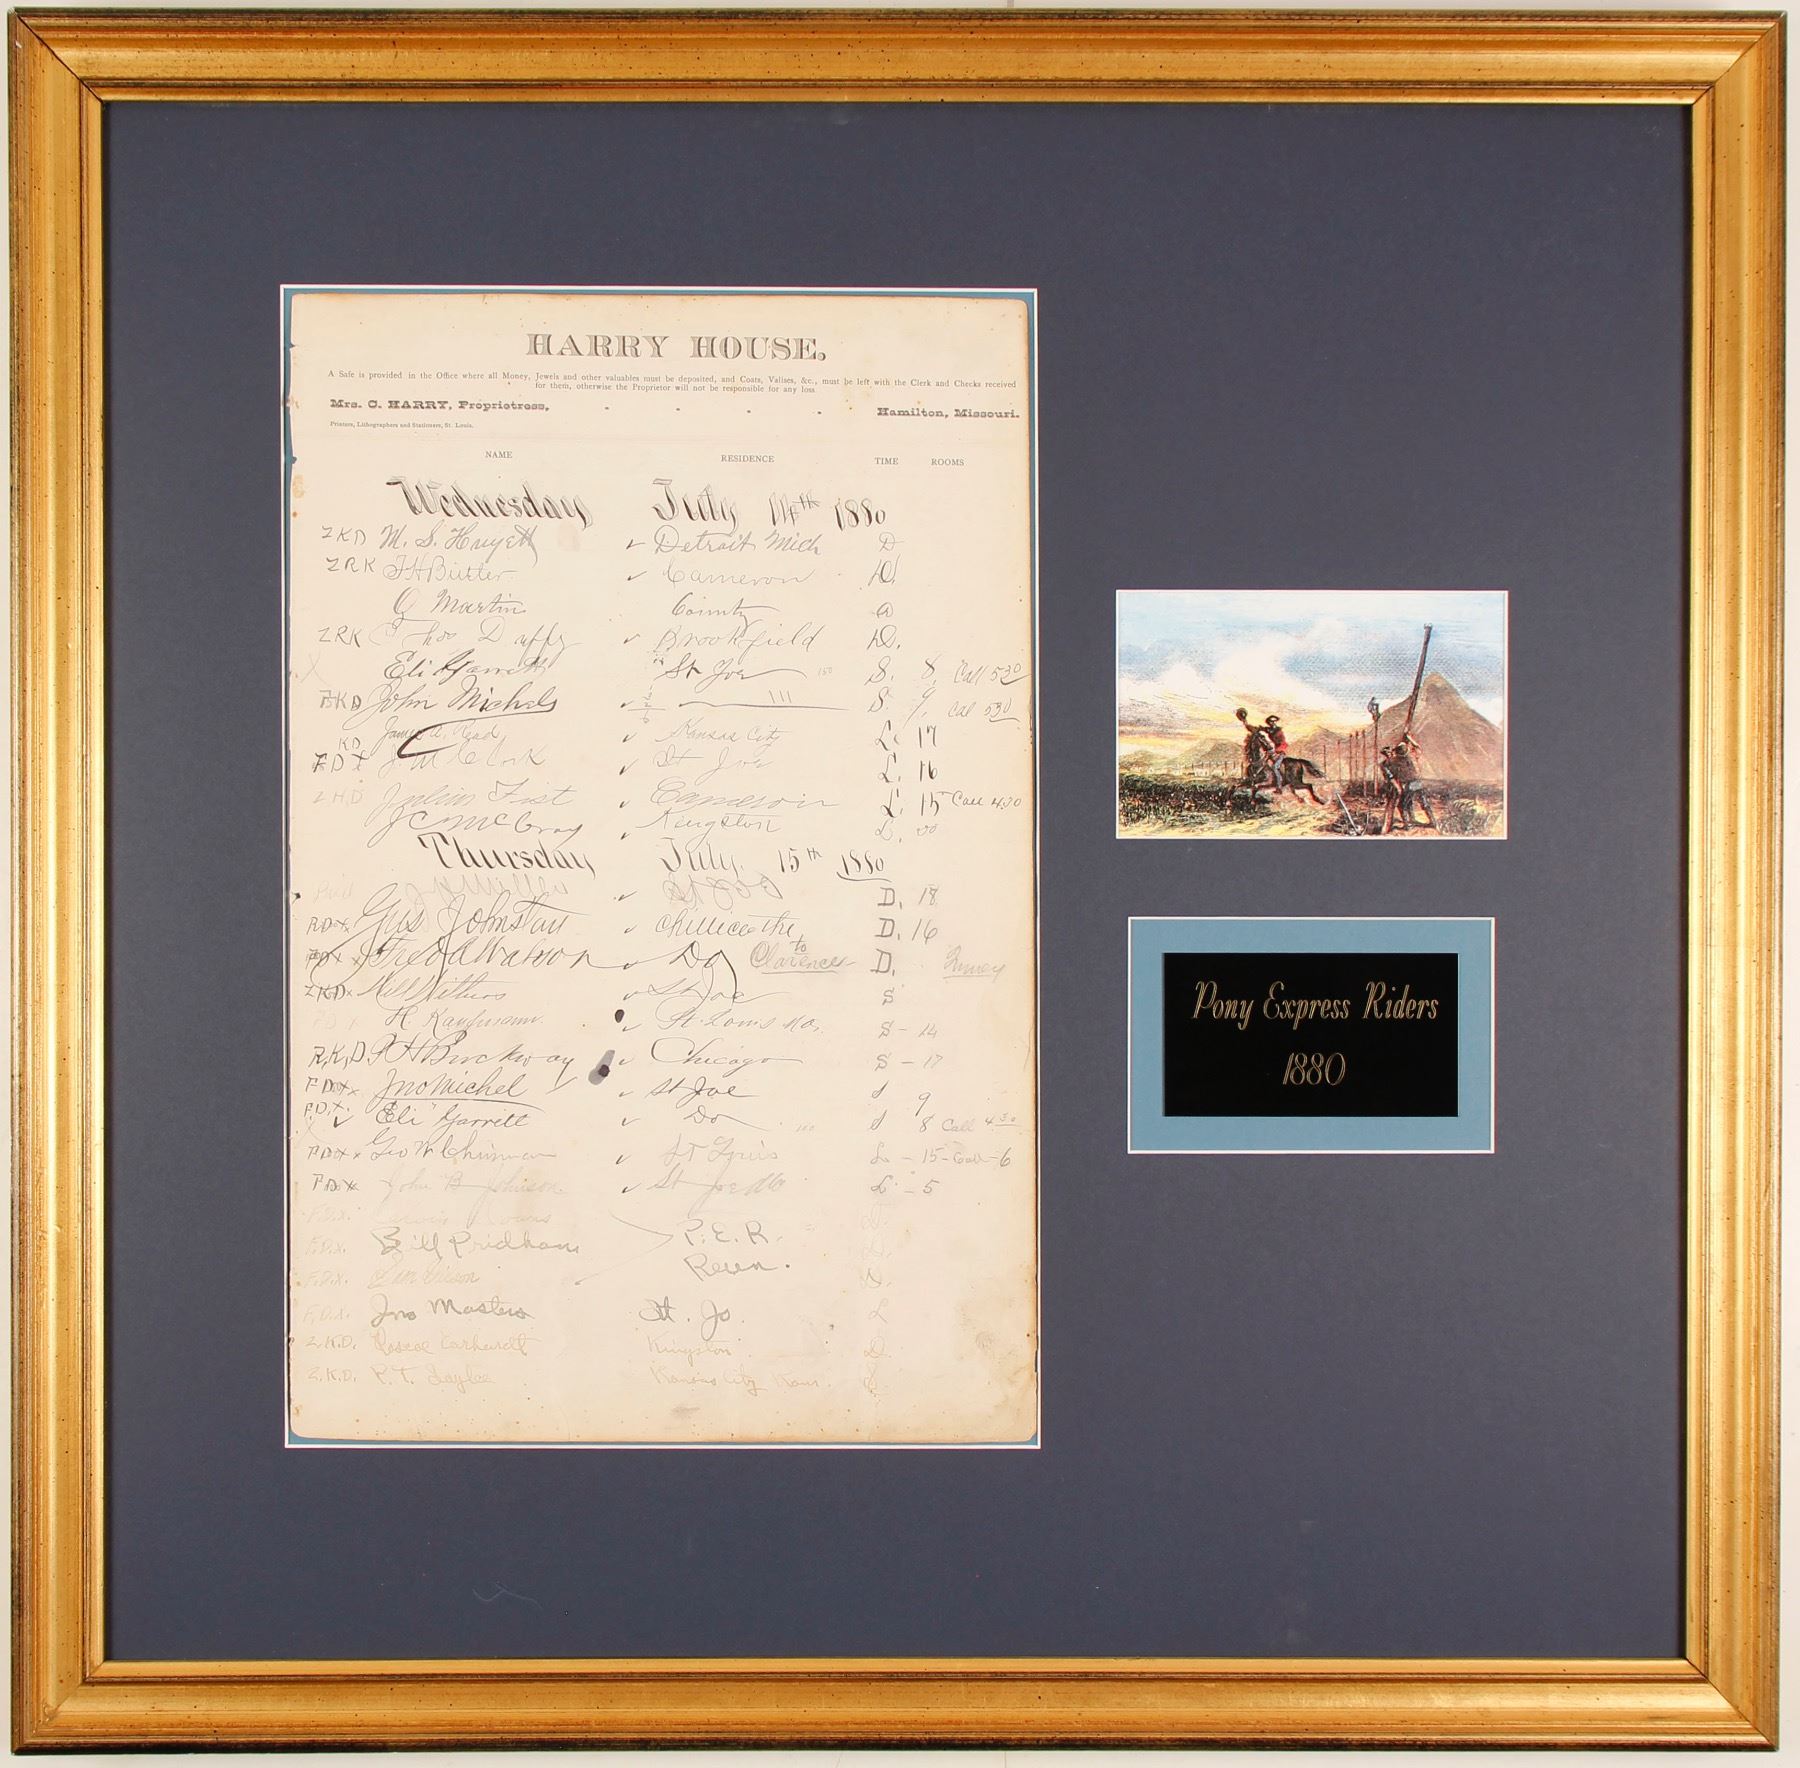 HARRY HOUSE.
A Safe is provided in the Office where all Money, Jewels and other valuables must be deposited, and Coats, Valises, &c., must be left with the Clerk and Checks received
for them, otherwise the Proprietor will not be responsible for any loss
Mrs. C. HARRY, Proprietress, - - - - Hamilton, Missouri.
Printers, Lithographers and Stationers, St. Louis.
NAME RESIDENCE TIME ROOMS
Wednesday July 14th 1880
ZKD M. S. Huyett ✓ Detroit Mich D
ZRK ✓ Cameron D.
Martin County a
ZRK Thos Duffy ✓ Brookfield D.
X Eli Garrett "St Joe 150 S. 8, Call 530
BKD John Michels ✓ S. 9, Cal 530
KD James A. Read ✓ Kansas City L. 17
F.D.X J M Clark ✓ St Joe L. 16
Z H,D Julius Fist ✓ Cameron L. 15 Call 4.30
J C McCray ✓ Kingston L. 00
Thursday July 15th 1880
Paid Miller ✓ St Joe D. 18
Gus Johnston ✓ Chillicothe, D. 16
Fred A Watson ✓ Do to Clarence D.
ZKDx Withers ✓ St Joe S
H. Kaufmann ✓ St. Louis Mo. S - 14
R,K,D Buckway ✓ Chicago S - 17
Jno Michel ✓ St Joe S 9
F.D.X. ✓ Eli Garrett ✓ Do 100 S 8 Call 4 30
Geo W ✓ St Louis L - 15 - Call - 6
John B Johnson ✓ St Joe Mo L - 5
F.D.X.
F.D.X. Bill Pridham P.E.R. D.
Reun.
F.D.X. D.
F.D.X. Jno Masters St. Jo. L
Z.K.D. Roscoe Earhardt Kingston D.
Z.K.D. P. T. Kansas City Kans. S
Pony Express Riders
1880